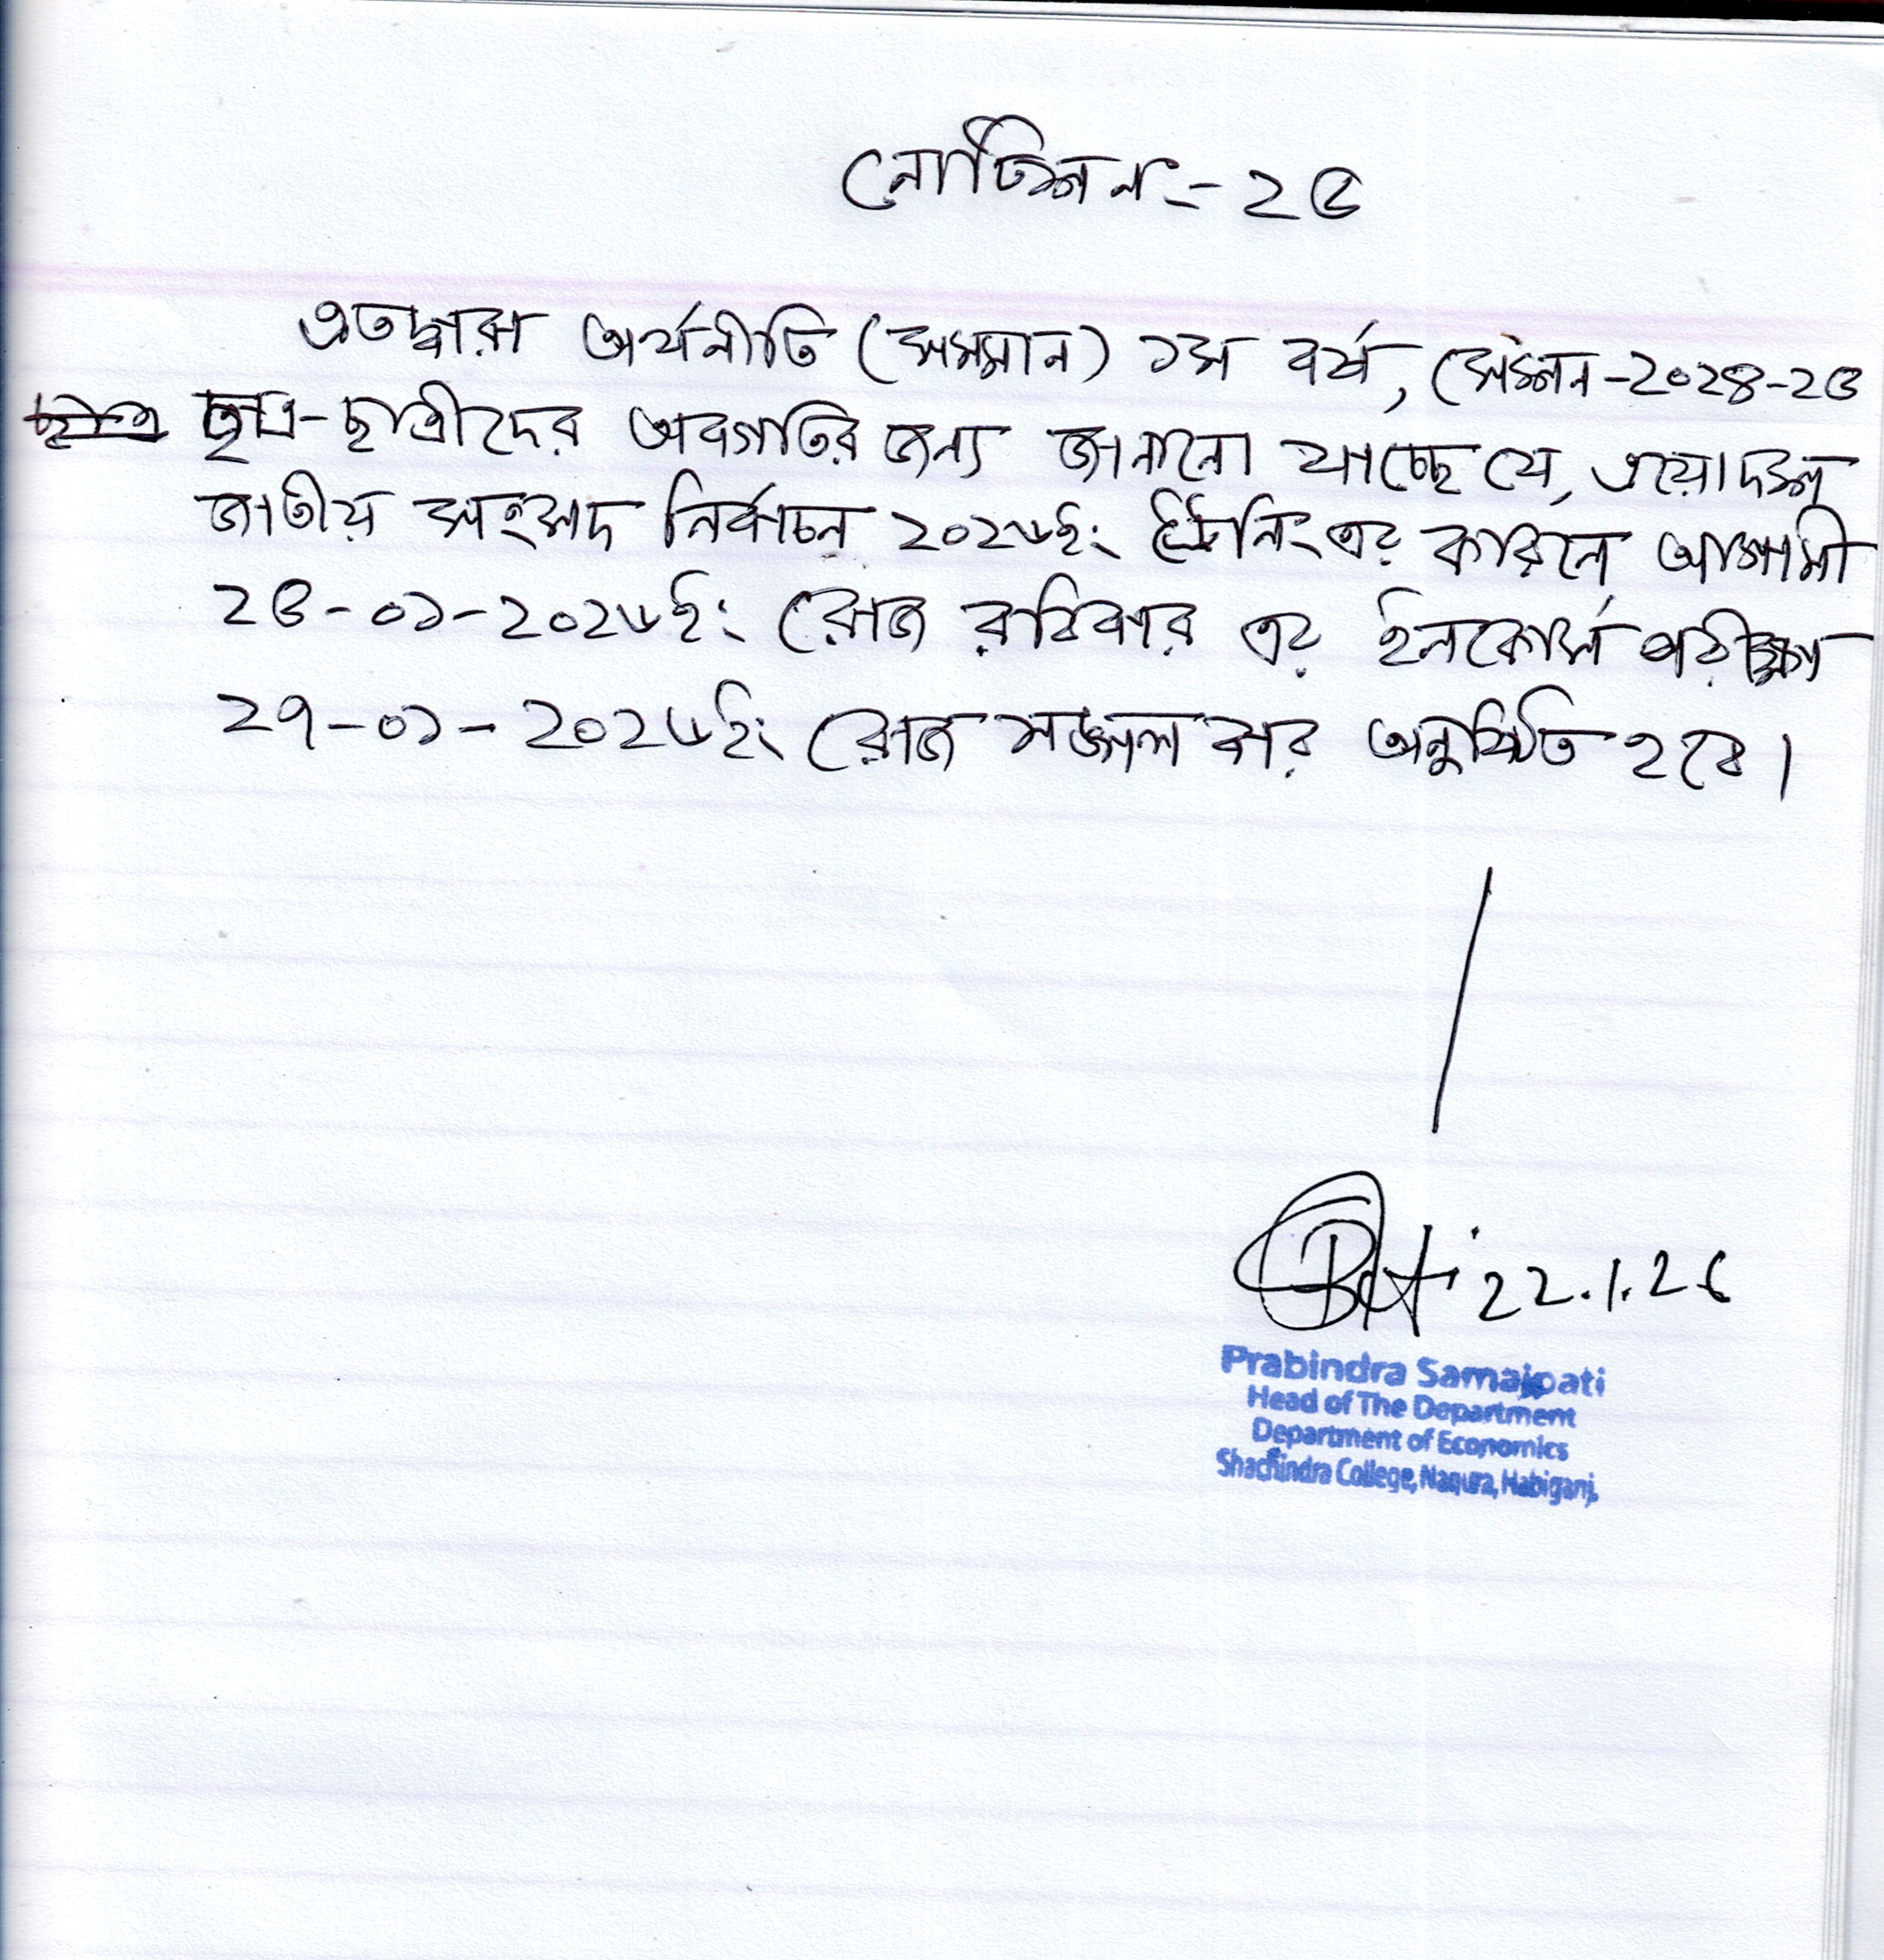 নোটিশ নং- ২৫
এতদ্বারা অর্থনীতি (সম্মান) ১ম বর্ষ, সেশন-২০২৪-২৫
ছাত্র-ছাত্রীদের অবগতির জন্য জানানো যাচ্ছে যে, ত্রয়োদশ
জাতীয় সংসদ নির্বাচন ২০২৬ইং ট্রেনিং এর কারনে আগামী
২৫-০১-২০২৬ইং রোজ রবিবার এর ইনকোর্স পরীক্ষা
২৭-০১-২০২৬ইং রোজ মঙ্গলবার অনুষ্ঠিত হবে।
22.1.26
Prabindra Samajpati
Head of The Department
Department of Economics
Shachindra College, Nagura, Habiganj.